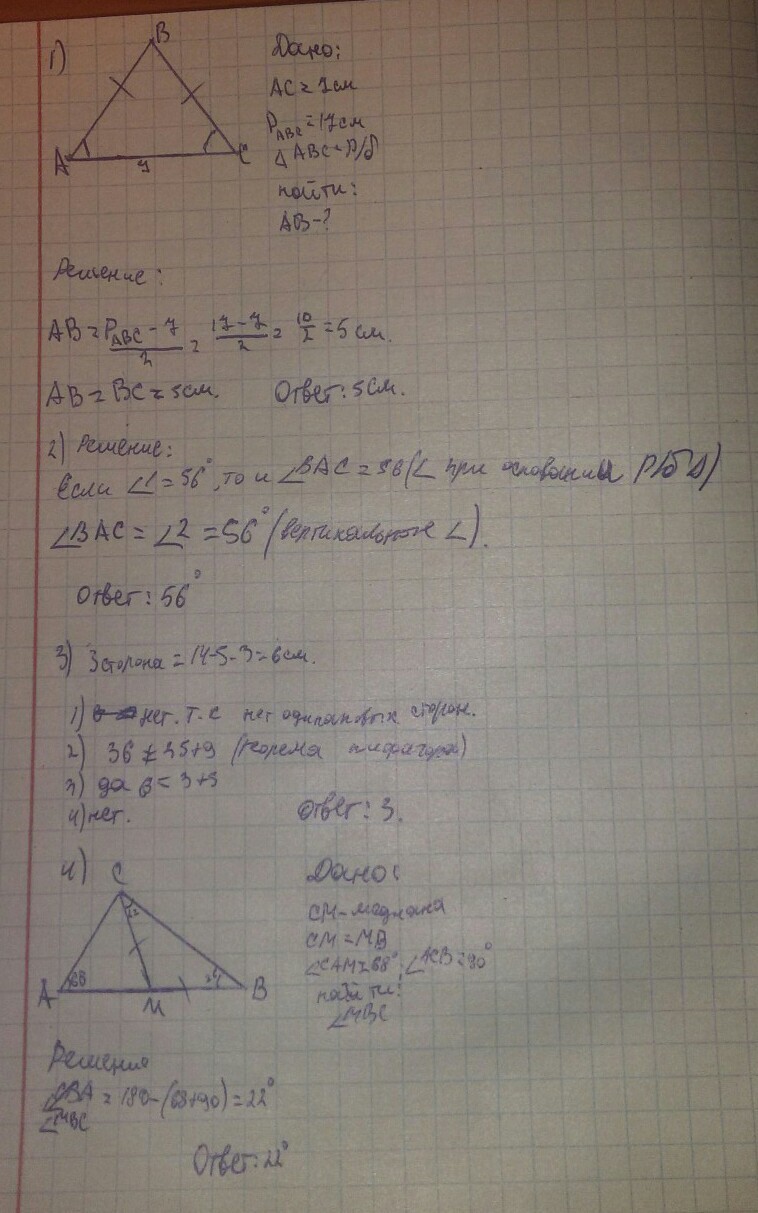 1)
B
A
C
7
Дано:
AC = 7см
P ABC = 17см
Δ ABC - р/б
найти:
AB - ?
Решение:
AB = P ABC - 7 / 2 = 17 - 7 / 2 = 10 / 2 = 5 см.
AB = BC = 5см. Ответ: 5см.
2) Решение:
Если ∠1 = 56°, то и ∠BAC = 56 (∠ при основании р/б Δ)
∠BAC = ∠2 = 56° (вертикальные ∠).
Ответ: 56°
3) 3 сторона = 14-5-3 = 6см.
1) нет. т.к нет одинаковых сторон.
2) 36 ≠ 35+9 (теорема пифагора)
3) да 6 < 3+5
4) нет. Ответ: 3.
4)
C
22
68
A
M
B
Дано:
CM - медиана
CM = MB
∠CAM = 68°, ∠ACB = 90°
найти:
∠MBC
Решение
∠CBA = 180 - (68+90) = 22°
∠MBC
Ответ: 22°